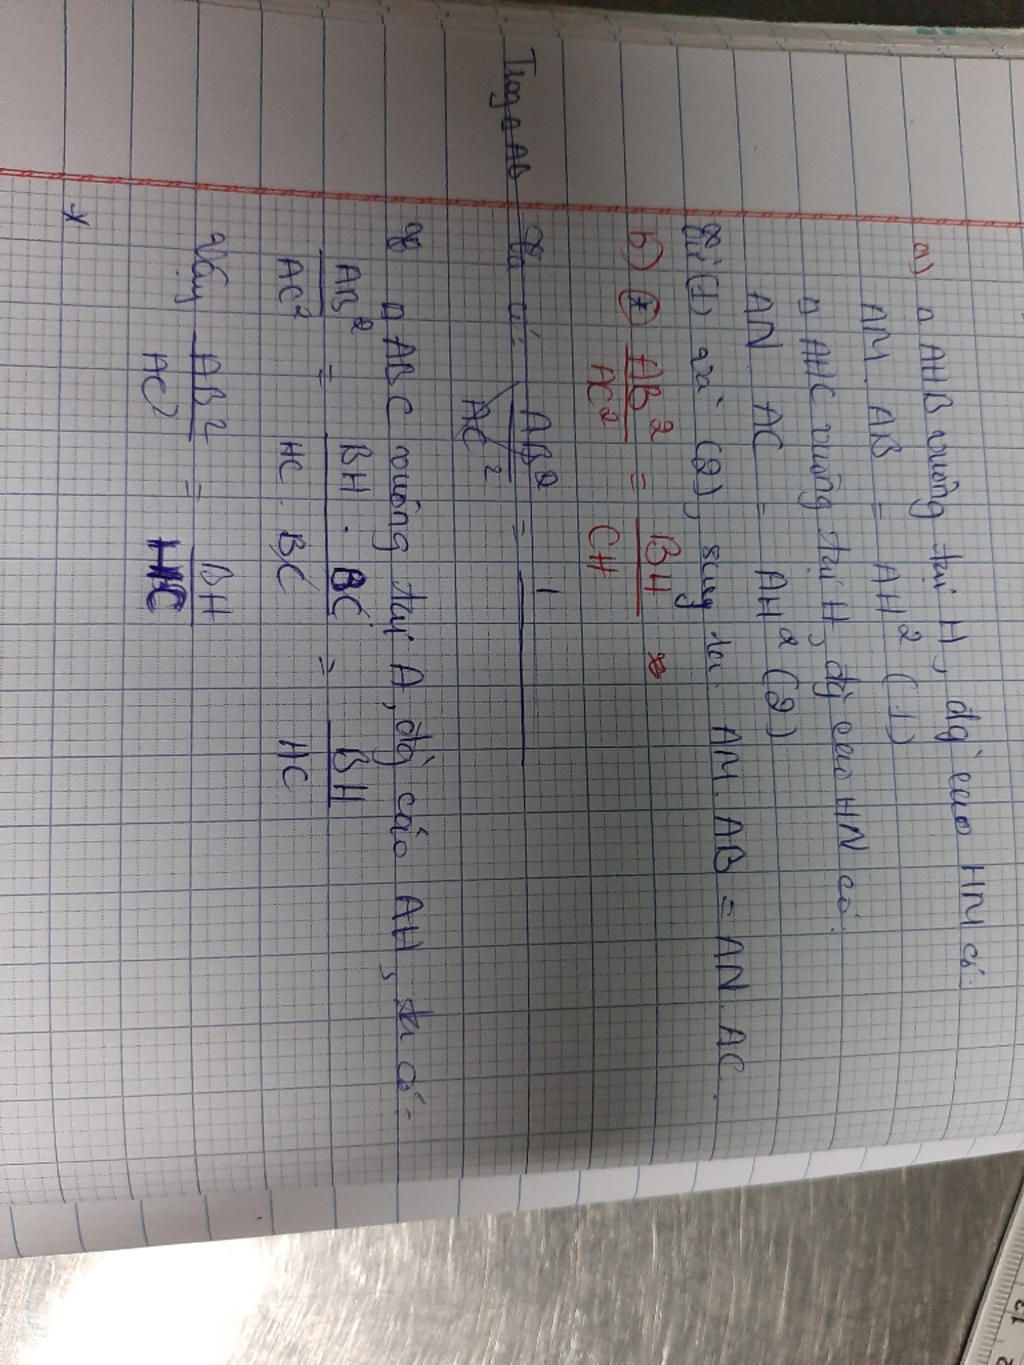 a) Δ AHB vuông tại H, đg cao HM có:
AM . AB = AH² (1)
Δ AHC vuông tại H, đg cao HN có:
AN . AC = AH² (2)
(1) và (2), suy ra: AM . AB = AN . AC.
b) * AB²/AC² = BH/CH *
có: AB²/AC² = 1
Δ AB
Δ ABC vuông tại A, đg cao AH, ta có:
AB²/AC² = BH . BC/HC . BC = BH/HC
Vậy AB²/AC² = BH/HC
*